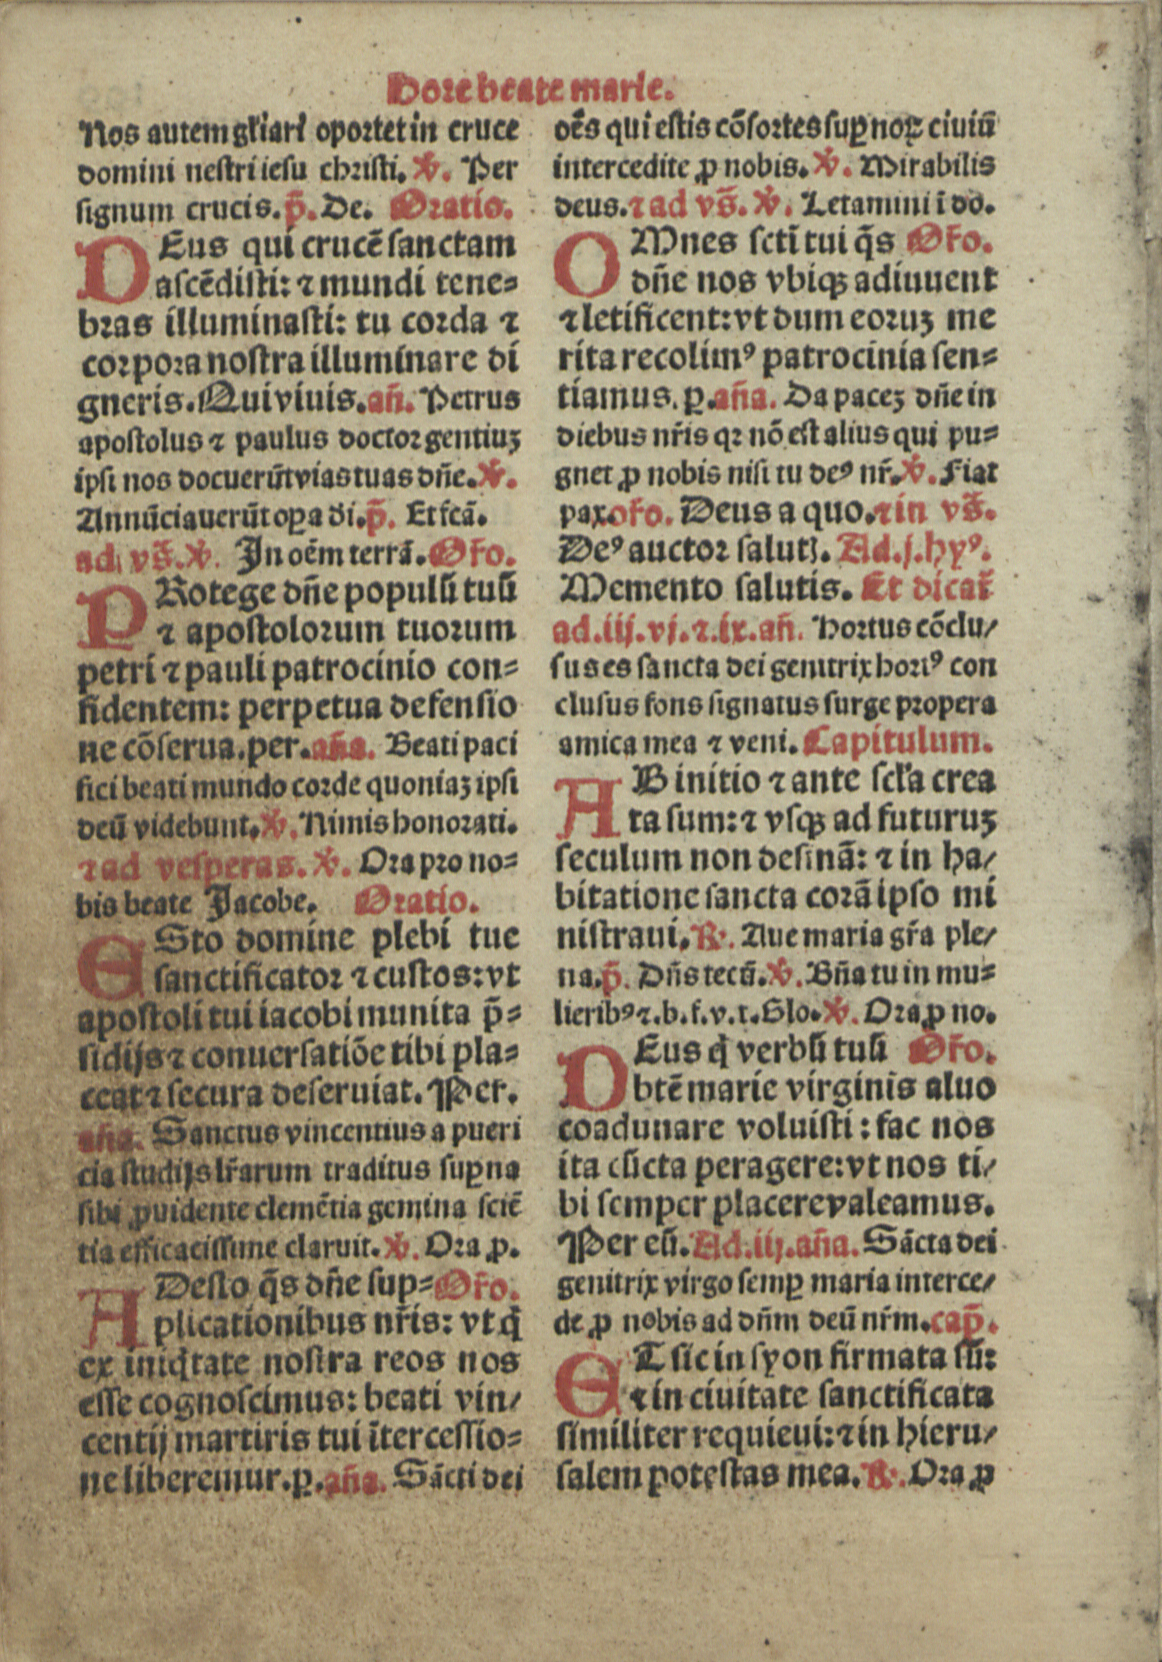 Hore beate marie.
Nos autem gl'iari oportet in cruce
domini nestri iesu christi. ℣. Per
signum crucis. p̃. De. Oratio.
DEus qui crucē sanctam
ascēdisti: ⁊ mundi tene=
bras illuminasti: tu corda ⁊
corpora nostra illuminare di
gneris. Qui viuis. añ. Petrus
apostolus ⁊ paulus doctor gentiuꝫ
ipsi nos docuerūt vias tuas dñe. ℣.
Annūciauerūt oꝑa di. p̃. Et fcā.
ad vs̃. ℣. In oēm terrā. Or̃o.
PRotege dñe populū tuū
⁊ apostolorum tuorum
petri ⁊ pauli patrocinio con=
fidentem: perpetua defensio
ne cōserua. per. aña. Beati paci
fici beati mundo corde quoniaꝫ ipsi
deū videbunt. ℣. Nimis honorati.
⁊ ad vesperas. ℣. Ora pro no=
bis beate Jacobe. Oratio.
ESto domine plebi tue
sanctificator ⁊ custos: vt
apostoli tui iacobi munita p̃=
sidijs ⁊ conuersatiōe tibi pla=
ceat ⁊ secura deseruiat. Per.
aña. Sanctus vincentius a pueri
cia studijs lr̃arum traditus suꝑna
sibi ꝓuidente clemētia gemina sciē
tia efficacissime claruit. ℣. Ora ꝓ.
ADesto q̃s dñe sup= Or̃o.
plicationibus nr̃is: vt q̇
ex iniq̇tate nostra reos nos
esse cognoscimus: beati vin/
centij martiris tui ītercessio=
ne liberemur. ꝑ. aña. Sācti dei
oēs qui estis cōsortes suꝑnoꝝ ciuiū
intercedite ꝓ nobis. ℣. Mirabilis
deus. ⁊ ad vs̃. ℣. Letamini ī dō.
OMnes scti tui q̃s Or̃o.
dñe nos vbiqꝫ adiuuent
⁊ letificent: vt dum eoruꝫ me
rita recolimꝰ patrocinia sen=
tiamus. ꝑ. aña. Da paceꝫ dñe in
diebus nr̃is qꝛ nō est alius qui pu=
gnet ꝓ nobis nisi tu deꝰ nr̃. ℣. Fiat
pax. or̃o. Deus a quo. ⁊ in vs̃.
Deꝰ auctor salutꝭ. Ad .j. hyꝰ.
Memento salutis. Et dicat̃
ad .iij. vj. ⁊ .ix. añ. Hortus cōclu/
sus es sancta dei genitrix hortꝰ con
clusus fons signatus surge propera
amica mea ⁊ veni. Capitulum.
AB initio ⁊ ante scl'a crea
ta sum: ⁊ vsqꝫ ad futuruꝫ
seculum non desinā: ⁊ in ha/
bitatione sancta corā ipso mi
nistraui. ℟. Aue maria gr̃a ple/
na. p̃. Dñs tecū. ℣. Bña tu in mu=
lieribꝰ ⁊. b. f. v. t. Glo. ℣. Ora ꝓ no.
DEus q̇ verbū tuū Or̃o.
btē marie virginis aluo
coadunare voluisti: fac nos
ita cūcta peragere: vt nos ti/
bi semper placere valeamus.
Per eū. Ad .iij. aña. Sācta dei
genitrix virgo semꝑ maria interce/
de ꝓ nobis ad dñm deū nr̃m. cap̃.
ET sic in syon firmata sū:
⁊ in ciuitate sanctificata
similiter requieui: ⁊ in hieru/
salem potestas mea. ℟. Ora ꝓ